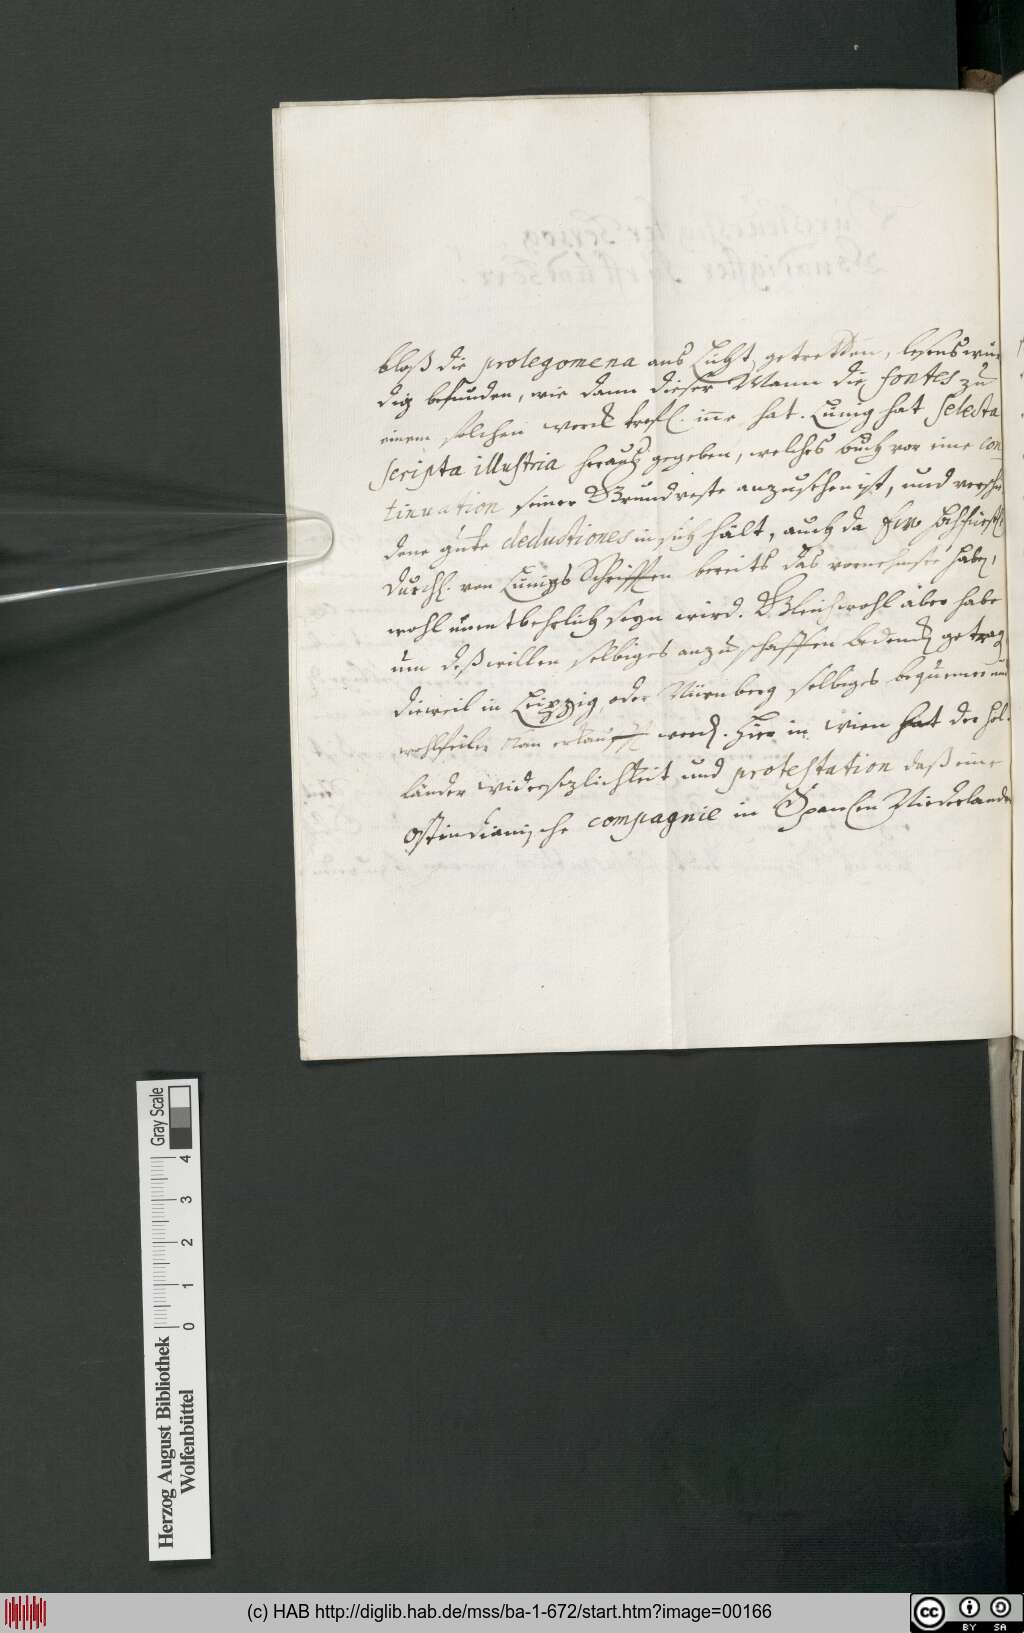 bloß die prolegomena ans Licht getretten, lesenswür
dig befunden, wie dann dieser Mann die fontes zu
einem solchen werck trefl. inne hat. Lünig hat selecta
scripta illustria herauß gegeben, welches buch vor eine con
tinuation seiner Grundveste anzusehen ist, und verschie
dene gute deductiones in sich hält, auch da Ew Hochfürstl
Durchl. von Lünigs Schrifften bereits das vornehmste haben,
wohl unentbehrlich seyn wird. Gleichwohl aber habe
um deßwillen selbiges anzuschaffen bedencken getragen
dieweil in Leipzig oder Nürnberg selbiges bequemer und
wohlfeiler kan erkaufft werden. Hier in Wien hat der Hol-
länder widersezlichkeit und protestation daß eine
Ostindianische compagnie in Spanschen Niederlanden
Herzog August Bibliothek
Wolfenbüttel
0 1 2 3 4
Gray Scale
(c) HAB http://diglib.hab.de/mss/ba-1-672/start.htm?image=00166
CC BY SA